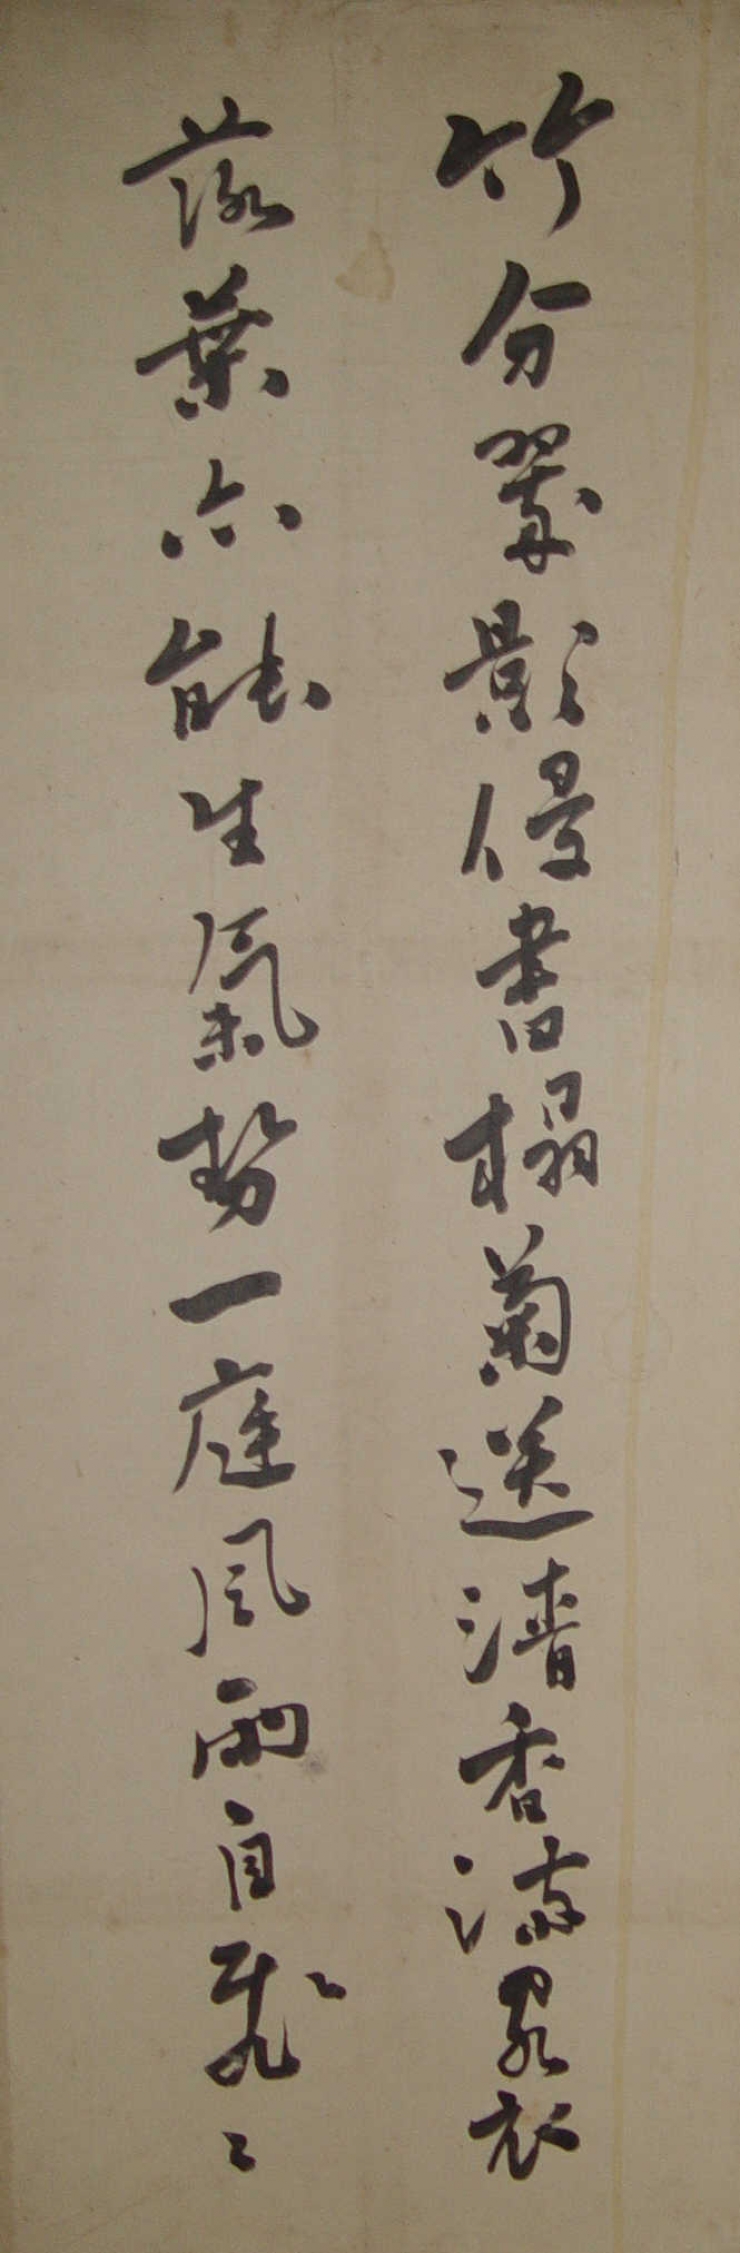 竹分翠影侵書榻菊送清香滿衣
落葉亦能生氣勢一庭風雨自飛〻